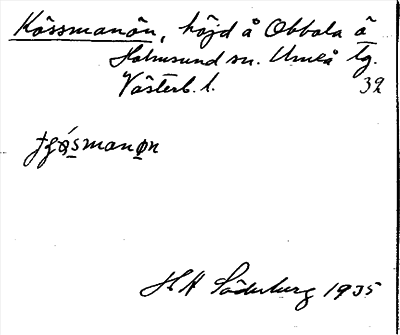 Kössmanön, höjd å Obbola ö
Holmsund sn. Umeå tg.
Västerb. l. 39
H H Söderburg 1935